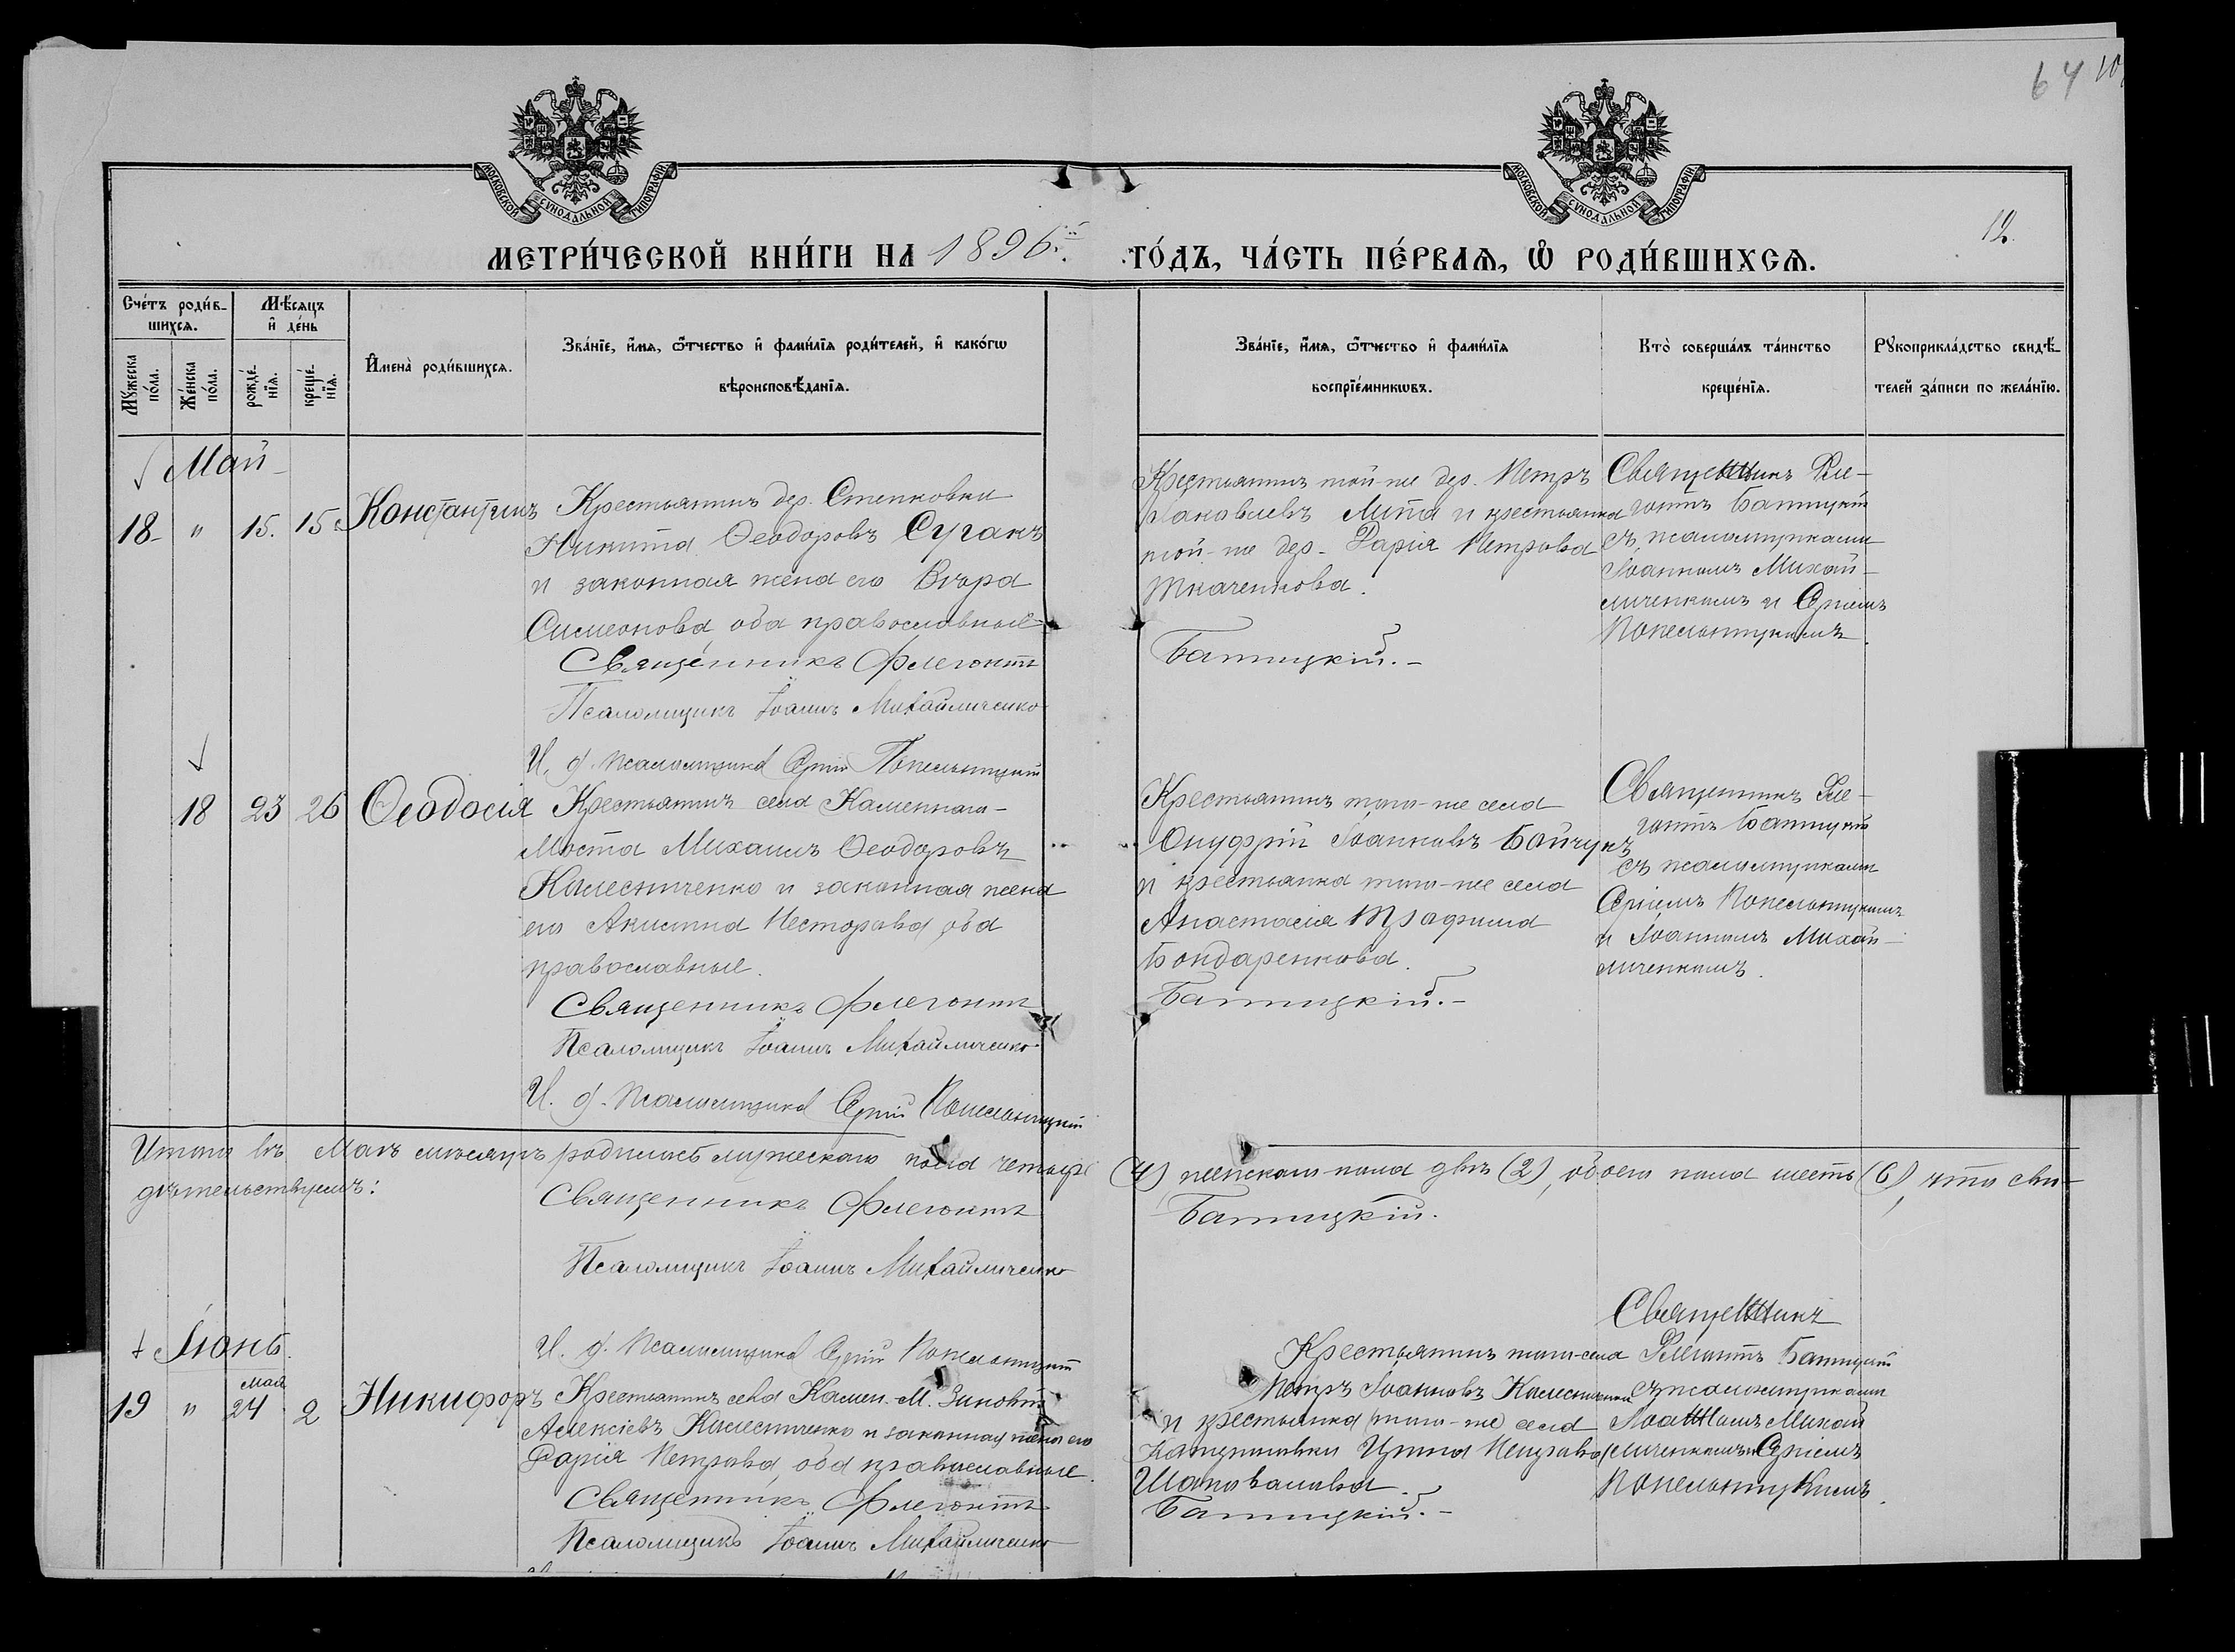 64 10
МОСКОВСКОЙ СѴНОДАЛЬНОЙ ТИПОГРАФІИ
МОСКОВСКОЙ СѴНОДАЛЬНОЙ ТИПОГРАФІИ
12.
МЕТРИ́ЧЕСКОЙ КНИ́ГИ НА 1896й ГО́ДЪ, ЧА́СТЬ ПЕ́РВАѦ, Ѡ РОДИ́ВШИХСѦ.
Сче́тъ роди́в-
шихсѧ.
Мѣ́сяцъ
и де́нь
Мꙋ́жеска
по́ла.
Же́нска
по́ла.
рожде́-
нїѧ.
креще́-
нїѧ.
И҆мена̀ роди́вшихсѧ.
Зва́нїе, и҆́мѧ, ѻ҆́тчество и҆ фами́лїѧ роди́телей, и҆ како́гѡ
вѣроисповѣ́данїѧ.
Зва́нїе, и҆́мѧ, ѻ҆́тчество и҆ фами́лїѧ
воспрїе́мникѡвъ.
Кто̀ соверша́лъ та́инство
креще́нїѧ.
Рꙋкоприкла́дство свидѣ́-
телей за́писи по жела́нїю.
Май
18 " 15. 15 Константинъ
Крестьянинъ дер. Степковки
Никита Ѳеодоровъ Сугакъ
и законная жена его Вѣра
Симеонова, оба православные
Священникъ Флегонтъ
Псаломщикъ Іоаннъ Михайличенко
И. д. псаломщика Сергій Попельницкій
Крестьянинъ той-же дер. Петръ
Яковлевъ Липа и крестьянка
той-же дер. Дарія Петрова
Ткаченкова.
Батицкій.-
Священникъ Фле-
гонтъ Батицкій
съ псаломщиками
Іоанномъ Михай-
личенкомъ и Сергіемъ
Попельницкимъ.
18 23 26 Ѳеодосія
Крестьянинъ села Каменнаго-
Моста Михаилъ Ѳеодоровъ
Колесниченко и законная жена
его Акилина Несторова, оба
православные.
Священникъ Флегонтъ
Псаломщикъ Іоаннъ Михайличенко
И. д. псаломщика Сергій Попельницкій
Крестьянинъ того-же села
Онуфрій Іоанновъ Байчукъ
и крестьянка того-же села
Анастасія Трофима
Бондаренкова.
Батицкій.-
Священникъ Фле-
гонтъ Батицкій
съ псаломщиками
Сергіемъ Попельницкимъ
и Іоанномъ Михай-
личенкомъ.
Итого въ Маѣ мѣсяцѣ родилось мужескаго пола четыре (4) женскаго пола двѣ (2), обоего пола шесть (6), что сви-
дѣтельствуемъ:
Священникъ Флегонтъ Батицкій.
Псаломщикъ Іоаннъ Михайличенко
И. д. псаломщика Сергій Попельницкій
Іюнь.
19 " Мая 24 2 Никифоръ
Крестьянинъ села Камен. М. Зиновій
Алексіевъ Колесниченко и законная жена его
Дарія Петрова, оба православные.
Священникъ Флегонтъ
Псаломщикъ Іоаннъ Михайличенко
Крестьянинъ того-села
Петръ Іоанновъ Колесниченко
и крестьянка того-же села
Ирина Петрова
Шаповалова.
Батицкій.-
Священникъ
Флегонтъ Батицкій
съ псаломщиками
Іоанномъ Михай
личенкомъ и Сергіемъ
Попельницкимъ.